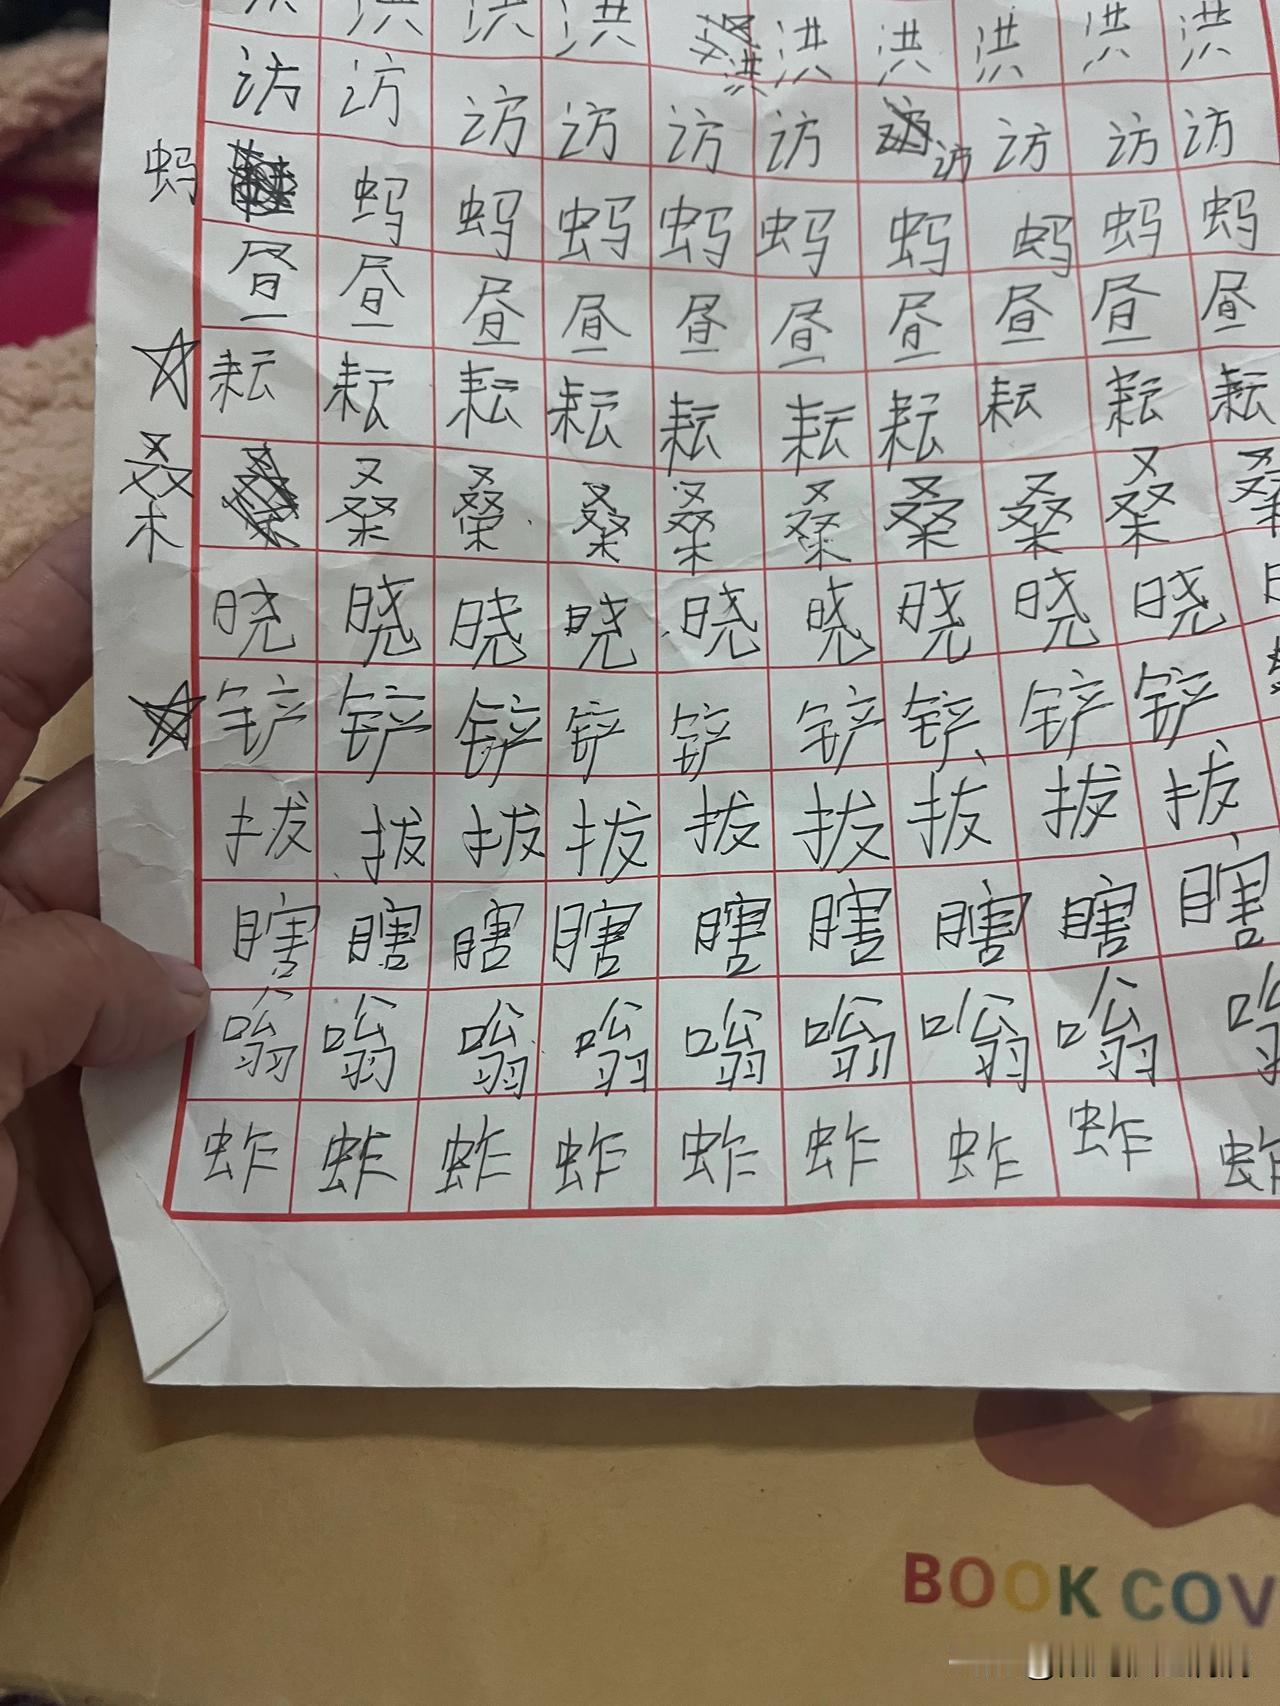 洪 洪 洪 洪 洪 洪 洪 洪 洪 洪
访 访 访 访 访 访 访 访 访 访
蚂 蚂 蚂 蚂 蚂 蚂 蚂 蚂 蚂 蚂
昼 昼 昼 昼 昼 昼 昼 昼 昼 昼
耘 耘 耘 耘 耘 耘 耘 耘 耘 耘
桑 桑 桑 桑 桑 桑 桑 桑 桑 桑
晓 晓 晓 晓 晓 晓 晓 晓 晓
铲 铲 铲 铲 铲 铲 铲 铲 铲
拔 拔 拔 拔 拔 拔 拔 拔 拔
瞎 瞎 瞎 瞎 瞎 瞎 瞎 瞎 瞎
嗡 嗡 嗡 嗡 嗡 嗡 嗡 嗡 嗡
蚱 蚱 蚱 蚱 蚱 蚱 蚱 蚱 蚱
BOOK COV